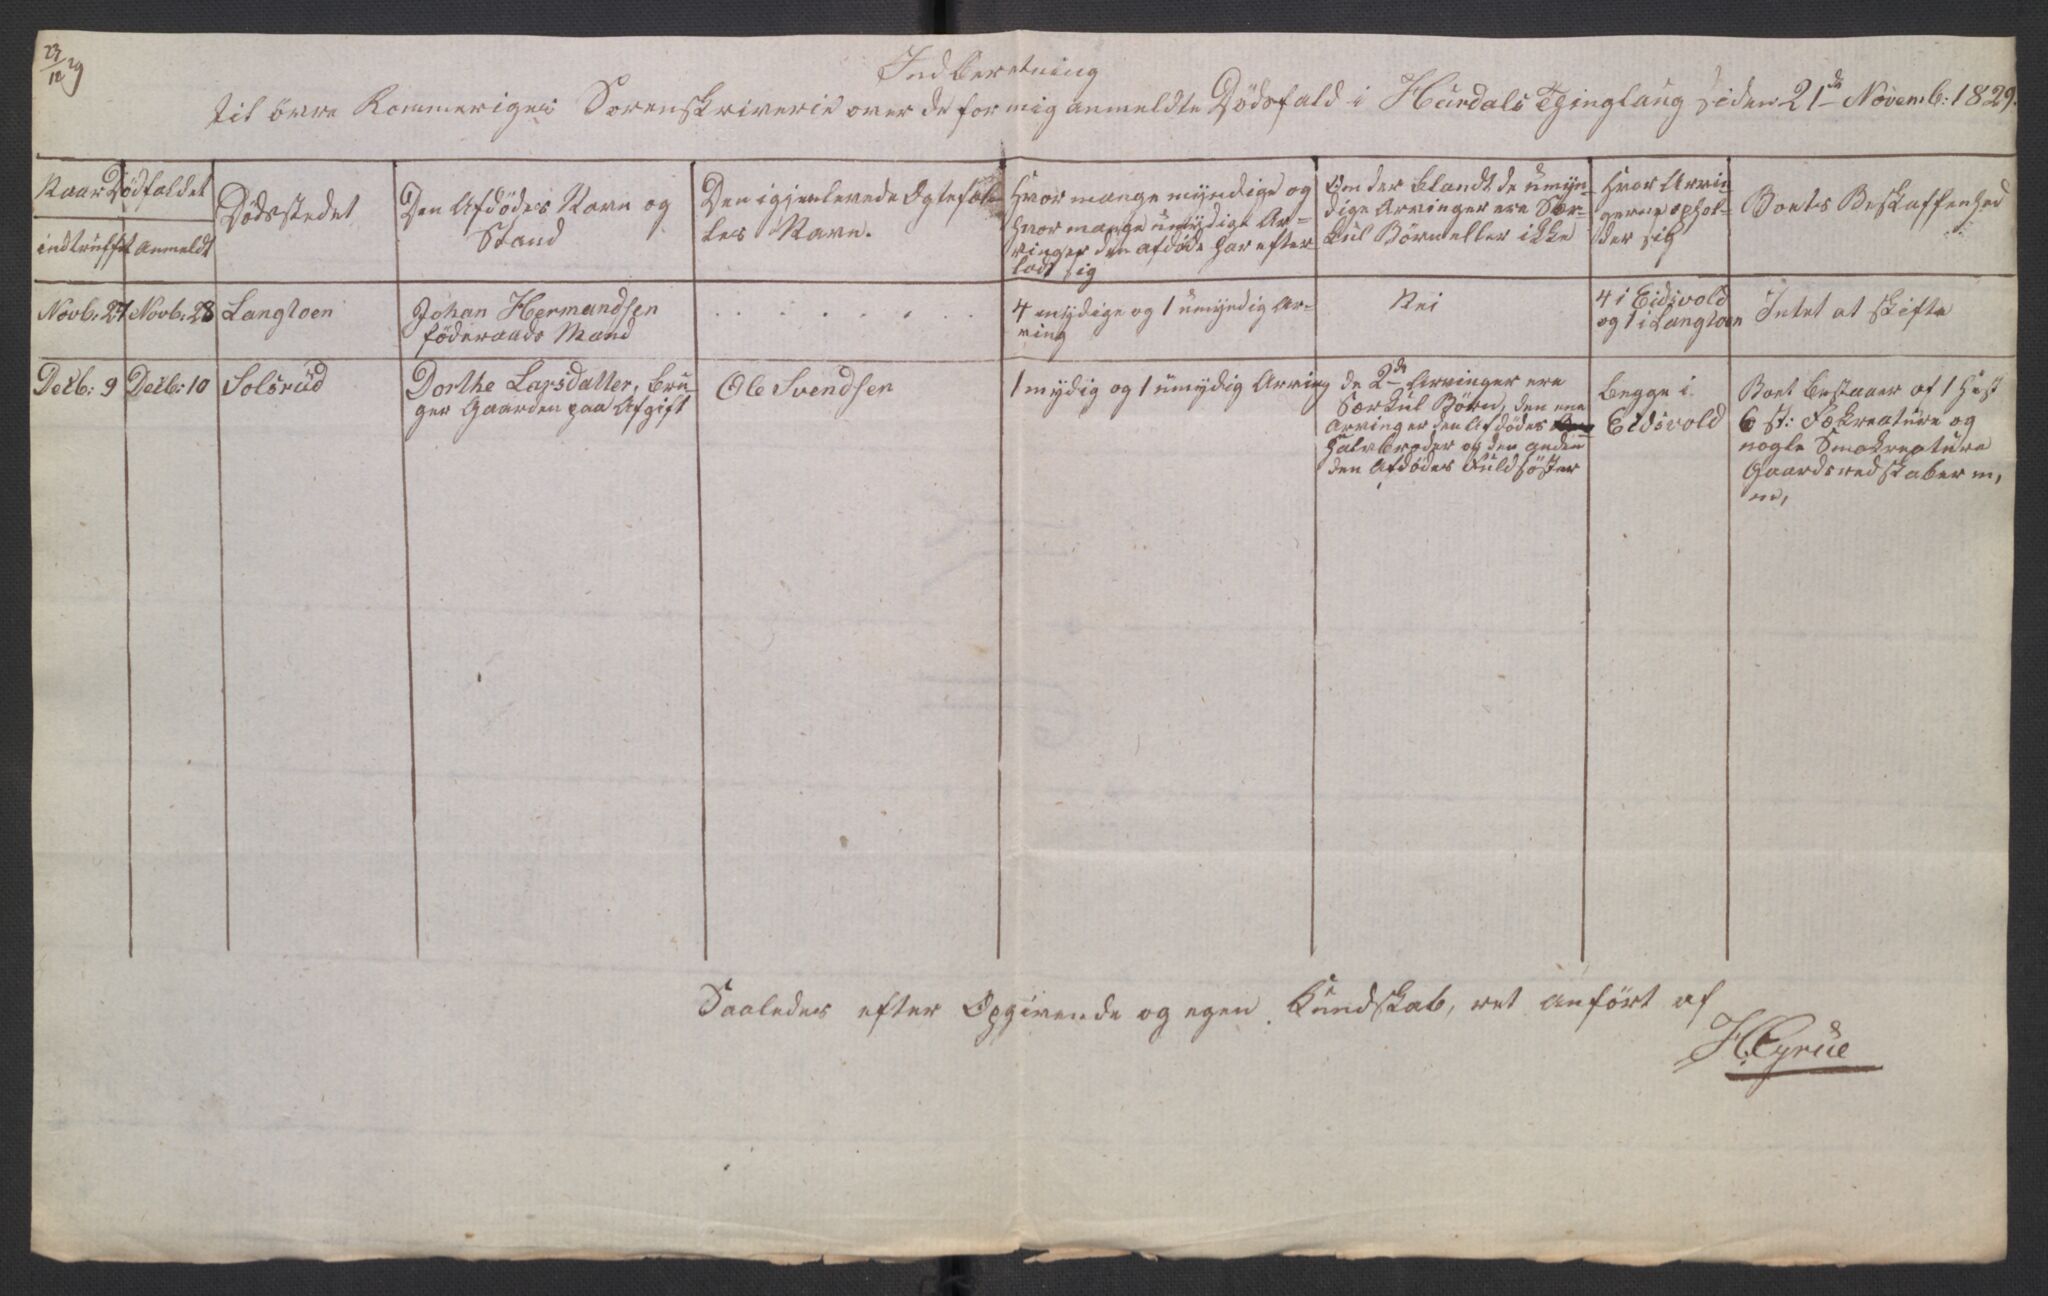 23/12 29
Indberetning
til övre Rommeriges Sorenskriverie over de for mig anmeldte Dödsfald i Hurdals Thinglaug siden 21de Novemb: 1829.
Naar Dödfaldet
indtruffet
Anmeldt
Dödsstedet
Den Afdödes Navn og
Stand
Den igjenlevede Ægtefæl-
les Navn.
Hvor mange myndige og
hvor mange umÿdige Ar-
vinger den afdöde har efter
ladt sig
Om der blandt de umÿn-
dige Arvinger ere Sær-
kul Börn eller ikke
Hvor Arvin
gerne ophol-
der sig
Boets Beskaffenhed
Novb: 27
Novb: 28
Langtoen
Johan Hermandsen
föderaads Mand
. . . . . . . .
4 mydige og 1 umyndig Ar-
ving
Nei
4 i Eidsvold
og 1 i Langtoen
Intet at skifte
Decb: 9
Decb: 10
Solsrud
Dorthe Larsdatter, bru
ger Gaarden paa Afgift
Ole Svendsen
1 mÿdig og 1 umÿdig Arving
de 2de Arvinger ere
Særkul Börn, den ene
Arving er den Afdödes
Halvbroder og den anden
den Afdödes Fuldsöster
begge i
Eidsvold
Boet bestaaer af 1 Hest
6 st: Fækreature og
nogle Smakreature
Gaardsredskaber m,
m,
Saaledes efter Opgivende og egen Kundskab, ret anfört af
H. Gyrue